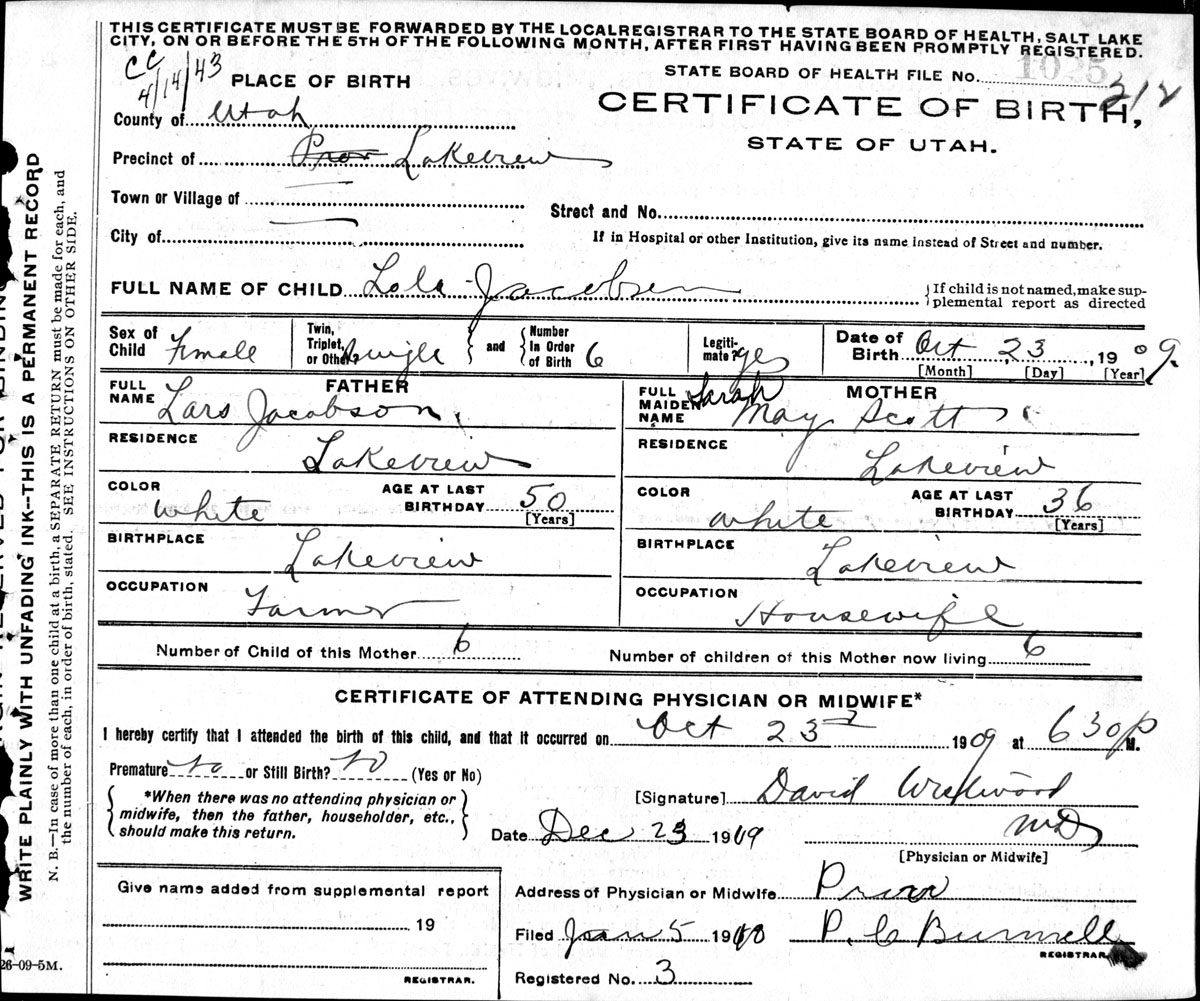 THIS CERTIFICATE MUST BE FORWARDED BY THE LOCAL REGISTRAR TO THE STATE BOARD OF HEALTH, SALT LAKE
CITY, ON OR BEFORE THE 5TH OF THE FOLLOWING MONTH, AFTER FIRST HAVING BEEN PROMPTLY REGISTERED.
CC
4/14/43
PLACE OF BIRTH
STATE BOARD OF HEALTH FILE No. 1025
212
CERTIFICATE OF BIRTH,
STATE OF UTAH.
County of Utah
Precinct of Prov Lakeview
Town or Village of
Street and No.
City of
If in Hospital or other Institution, give its name instead of Street and number.
FULL NAME OF CHILD Lola Jacobsen
If child is not named, make sup-
plemental report as directed
Sex of Child Female
Twin, Triplet, or Other? Single and Number In Order of Birth 6
Legiti-mate? yes
Date of Birth Oct 23, 1909.
[Month] [Day] [Year]
FATHER
FULL NAME Lars Jacobson.
MOTHER
FULL MAIDEN NAME Sarah May Scott
RESIDENCE Lakeview
RESIDENCE Lakeview
COLOR white AGE AT LAST BIRTHDAY 50 [Years]
COLOR white AGE AT LAST BIRTHDAY 36 [Years]
BIRTHPLACE Lakeview
BIRTHPLACE Lakeview
OCCUPATION Farmer
OCCUPATION Housewife
Number of Child of this Mother 6
Number of children of this Mother now living 6
CERTIFICATE OF ATTENDING PHYSICIAN OR MIDWIFE*
I hereby certify that I attended the birth of this child, and that it occurred on Oct 23 1909 at 630 P M.
Premature no or Still Birth? no (Yes or No)
*When there was no attending physician or
midwife, then the father, householder, etc.,
should make this return.
[Signature] David Westwood
Date Dec 23 1909
MD
[Physician or Midwife]
Give name added from supplemental report
19
REGISTRAR.
Address of Physician or Midwife Provo
Filed Jan 5 1910 P. C Burnell
REGISTRAR
Registered No. 3
WRITE PLAINLY WITH UNFADING INK--THIS IS A PERMANENT RECORD
N. B.—In case of more than one child at a birth, a SEPARATE RETURN must be made for each, and
the number of each, in order of birth, stated. SEE INSTRUCTIONS ON OTHER SIDE.
26-09-5M.